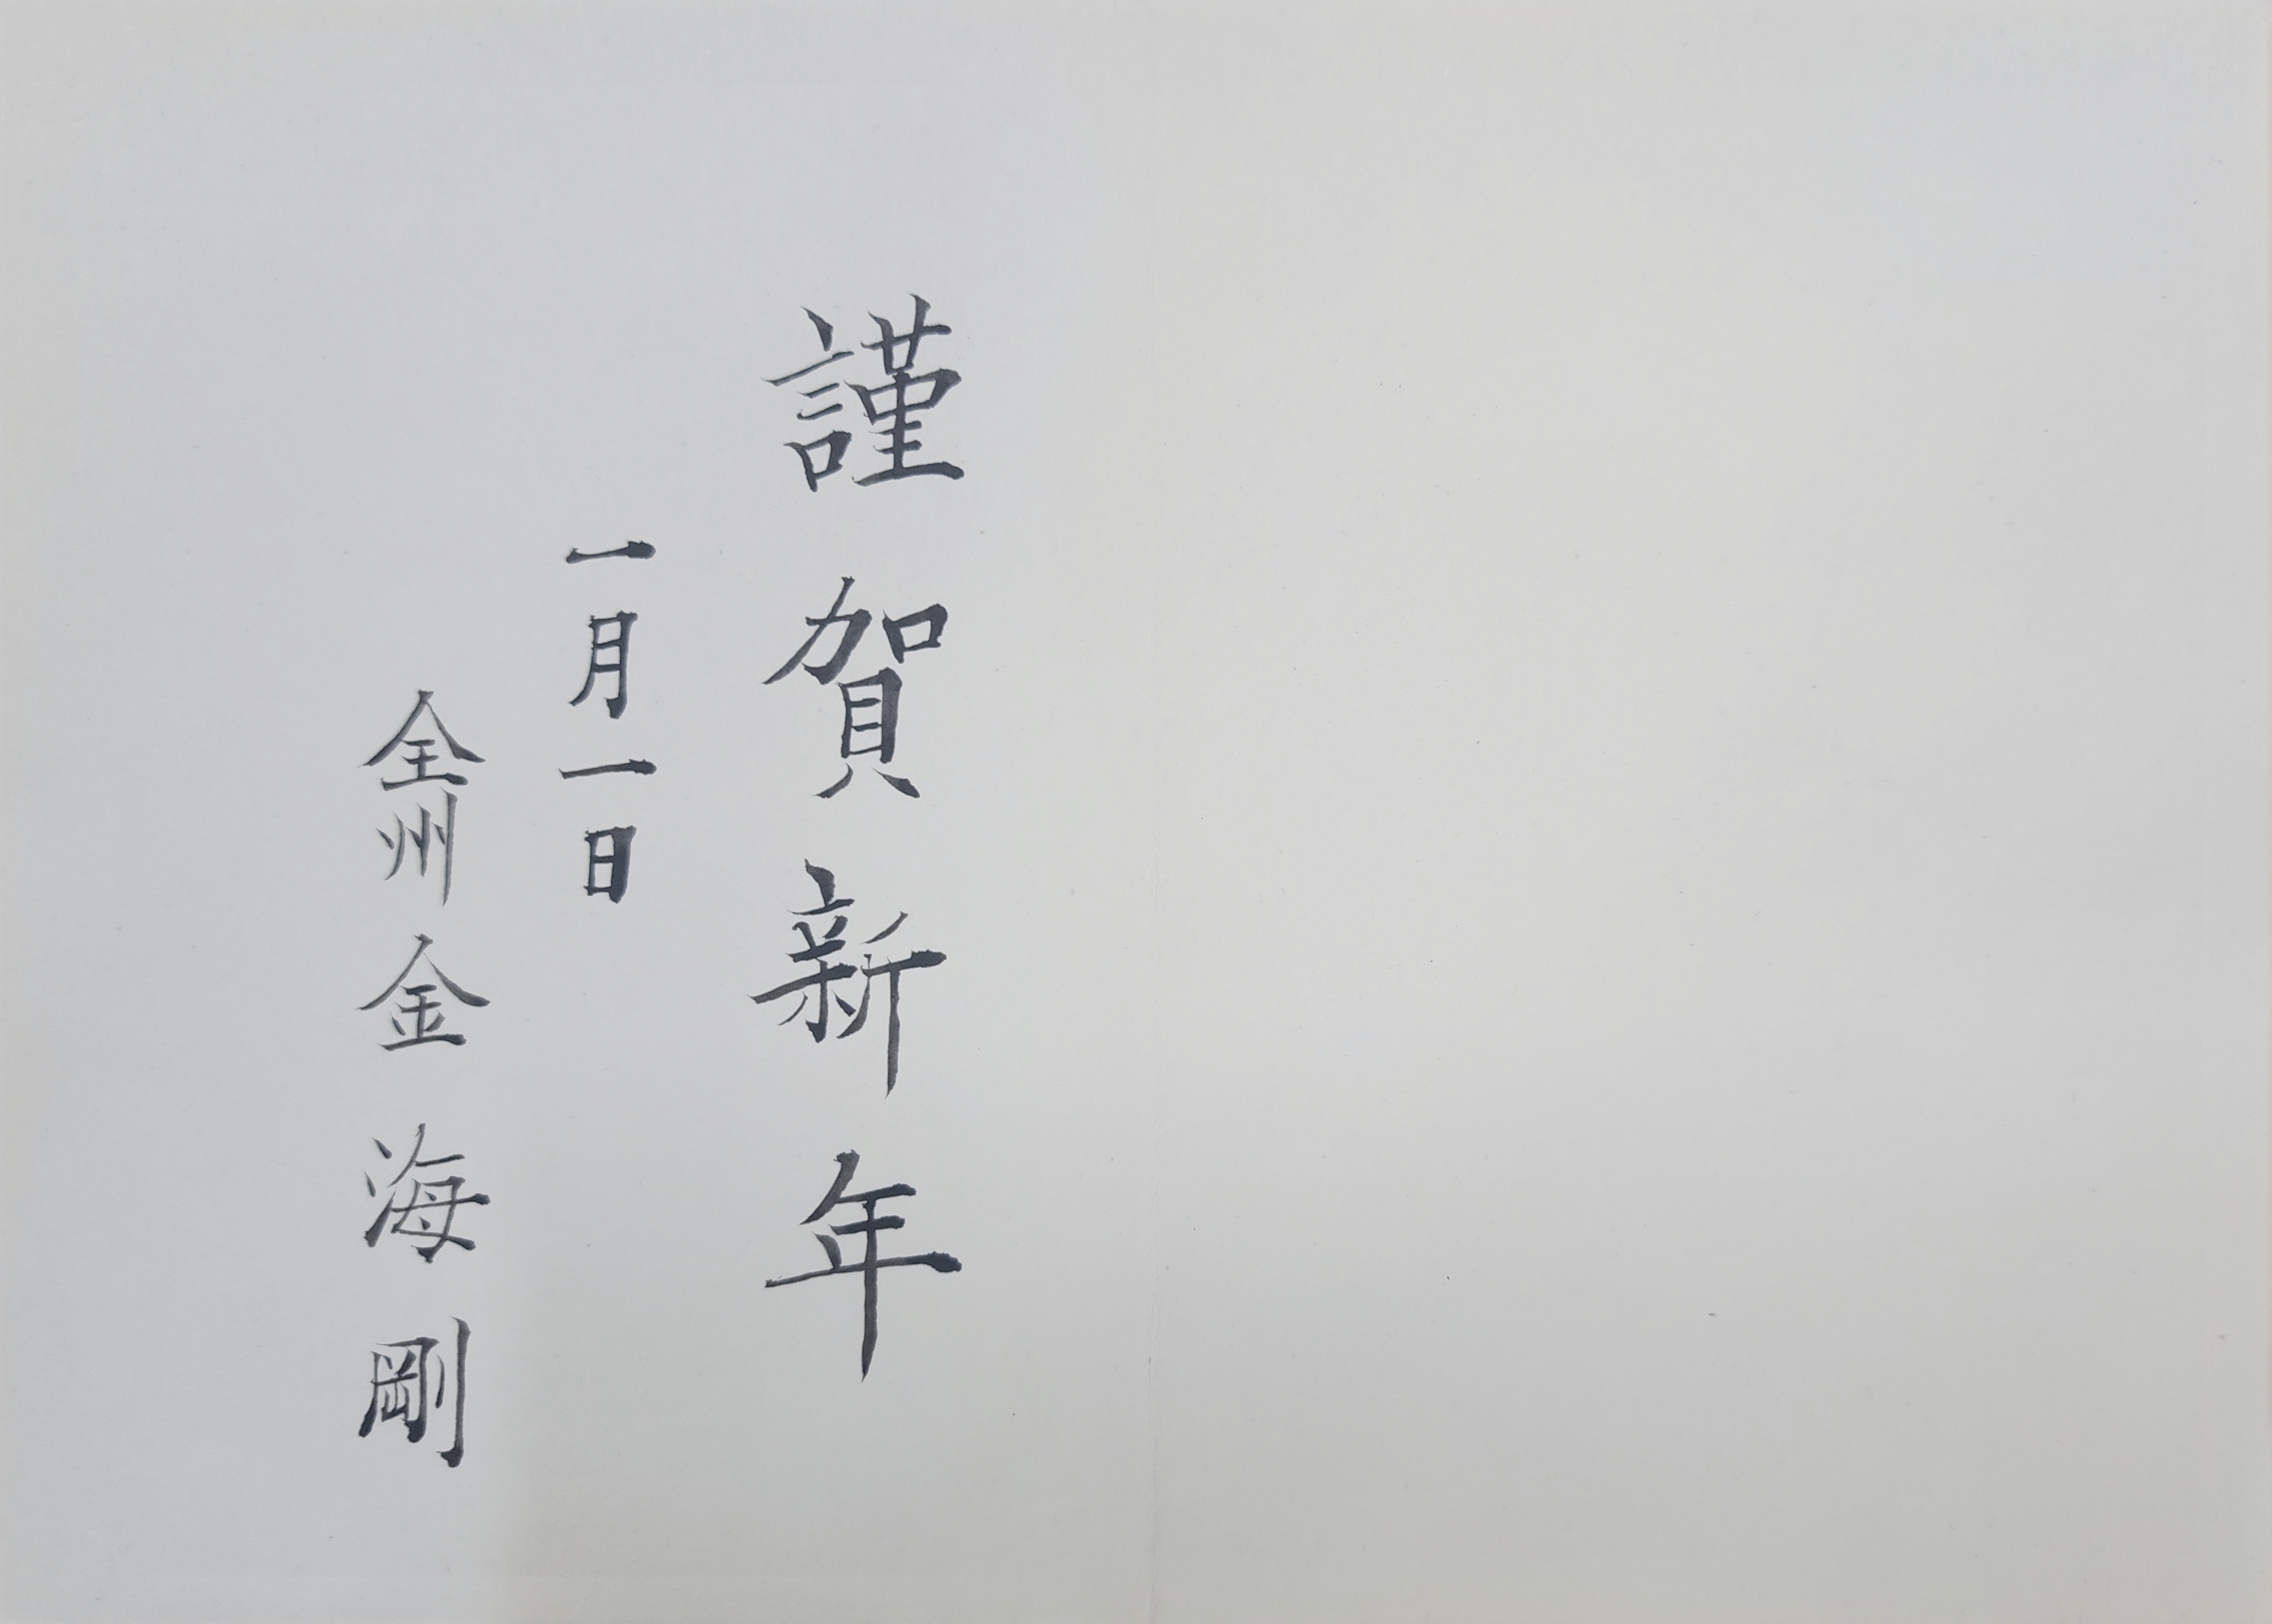 謹賀新年
一月一日
全州金海剛